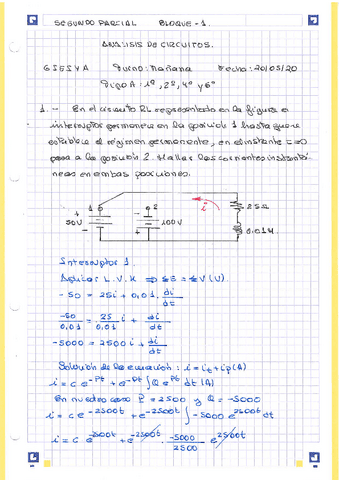 SEGUNDO PARCIAL BLOQUE - 1.
ANALISIS DE CIRCUITOS.
GIESIYA Turno: Mañana Fecha: 20/03/20
Tipo A: 1º, 2º, 4º y 6º
1.- En el circuito RL representado en la figura el
interruptor permanece en la posición 1 hasta que se
establece el régimen permanente, en el instante t=0
pasa a la posición 2. Hallar las corrientes instantá-
neas en ambas posiciones.
1 2
i
25Ω
50V
100V
0.01H
Interruptor 1.
Aplicar L.V.K ⇒ ΣE = ΣV (V)
-50 = 25i + 0,01 · di/dt
-50/0,01 = 25/0,01 i + di/dt
-5000 = 2500 i + di/dt
Solución de la ecuación: i = it + ip (A)
i = c e^-Pt + e^-Pt ∫ Q e^Pt dt (A)
En nuestro caso P = 2500 y Q = -5000
i = c e^-2500t + e^-2500t ∫ -5000 e^2500t dt
i = c e^-2500t + e^-2500t · -5000/2500 e^2500t